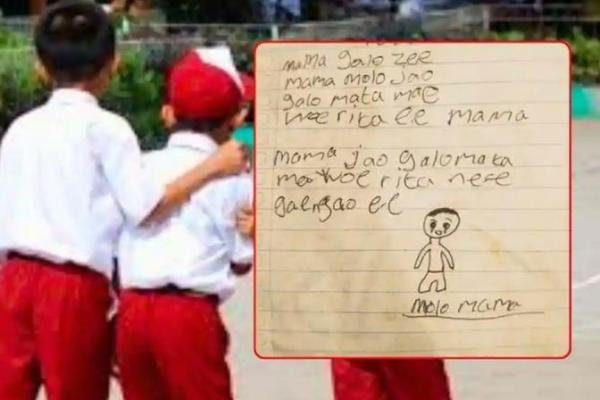 mama galo zee
mama molo Jao
galo mata mae
woe rita ee mama
mama jao galo mata
mae woe rita ne'e
gae ngao ee
molo mama